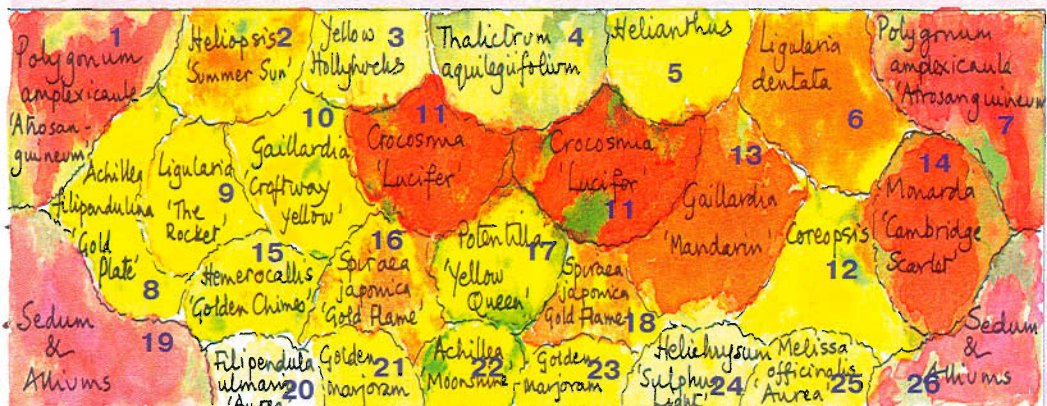 1
Polygonum
amplexicaule
'Atrosan-
guineum'
Heliopsis 2
'Summer Sun'
Yellow 3
Hollyhocks
Thalictrum 4
aquilegiifolium
Helianthus
5
Ligularia
dentata
6
Polygonum
amplexicaule
'Atrosanguineum
7
Achillea
filipendulina
'Gold
Plate'
8
Ligularia
9
'The
Rocket'
10
Gaillardia
'Croftway
yellow'
11
Crocosmia
'Lucifer
Crocosmia
'Lucifer'
11
13
Gaillardia
'Mandarin'
Coreopsis
12
14
Monarda
'Cambridge
Scarlet'
15
Hemerocallis
'Golden Chimes'
16
Spiraea
japonica
'Gold Flame'
Potentilla
17
'Yellow
Queen'
Spiraea
japonica
Gold Flame
18
Sedum
19
&
Alliums
Filipendula
ulmaria
20
'Aurea
Golden
21
marjoram
Achillea
22
Moonshine'
Golden
23
marjoram
Helichrysum
'Sulphur
24
Light'
Melissa
officinalis
Aurea
25
Sedum
&
26
Alliums